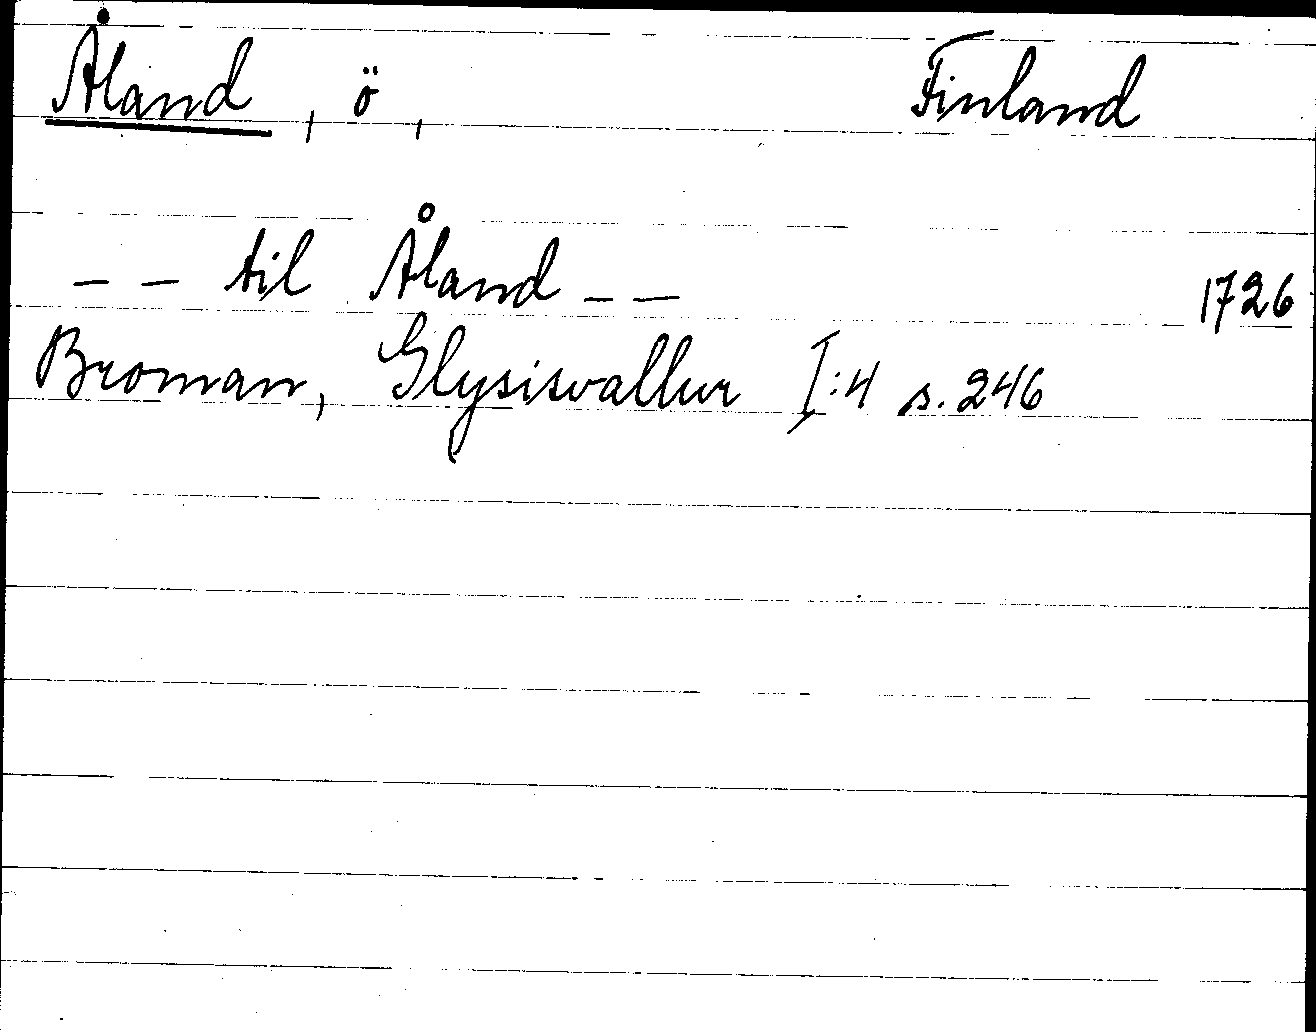 Åland, ö, Finland
-- til Åland -- 1726
Broman, Glysisvallur I:4 s. 246